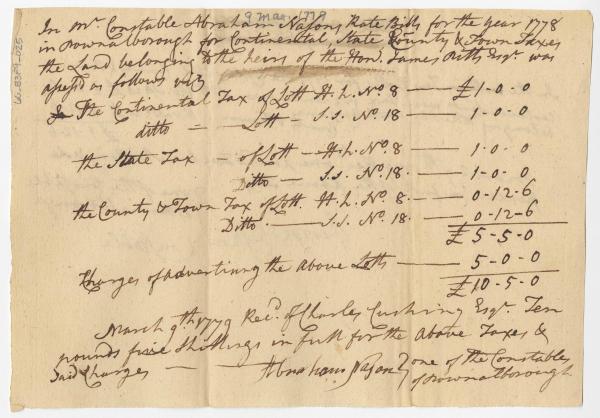 9 Mar. 1779
In Mr. Constable Abraham Nasons Rate Bills for the year 1778
in Pownalborough for Continental, State County & Town Taxes
the Land belonging to the heirs of the Hon. James Pitts Esqr. was
assess'd as follows viz
The Continental Tax of Lott H. L. No. 8 — £1-0-0
ditto — Lott — S. S. No. 18 — 1-0-0
the State Tax — of Lott — H. L. No. 8 — 1-0-0
Ditto — S. S. No. 18. — 1-0-0
the County & Town Tax of Lott. H. L. No. 8. — 0-12-6
Ditto. — S. S. No. 18. — 0-12-6
£5-5-0
Charges of advertising the Above Lotts — 5-0-0
£10-5-0
March 9th 1779 Recd. of Charles Cushing Esqr. Ten
pounds five Shillings in full for the Above Taxes &
Said Charges — Abraham Nason } one of the Constables
of Pownalborough